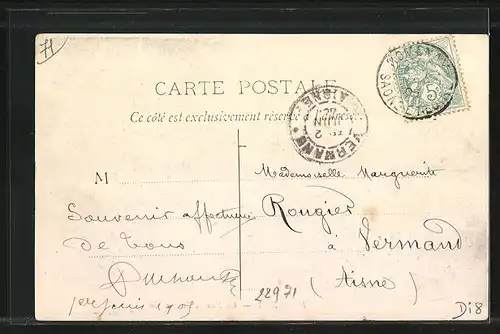 71
CARTE POSTALE
Ce côté est exclusivement réservé
5
SAONE
VERMAND
AISNE
2
JUIN
M
Mademoiselle Marguerite
Souvenir affectueux
Rougier
de tous
à Vermand
(Aisne)
22971
Di8